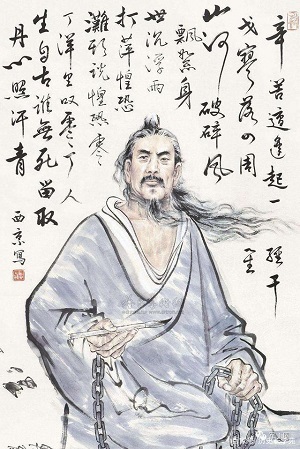 辛苦遭逢起一經干
戈寥落四周星
山河破碎風
飄絮身
世沉浮雨
打萍惶恐
灘頭說惶恐零
丁洋里嘆零丁人
生自古誰無死留取
丹心照汗青
西京寫